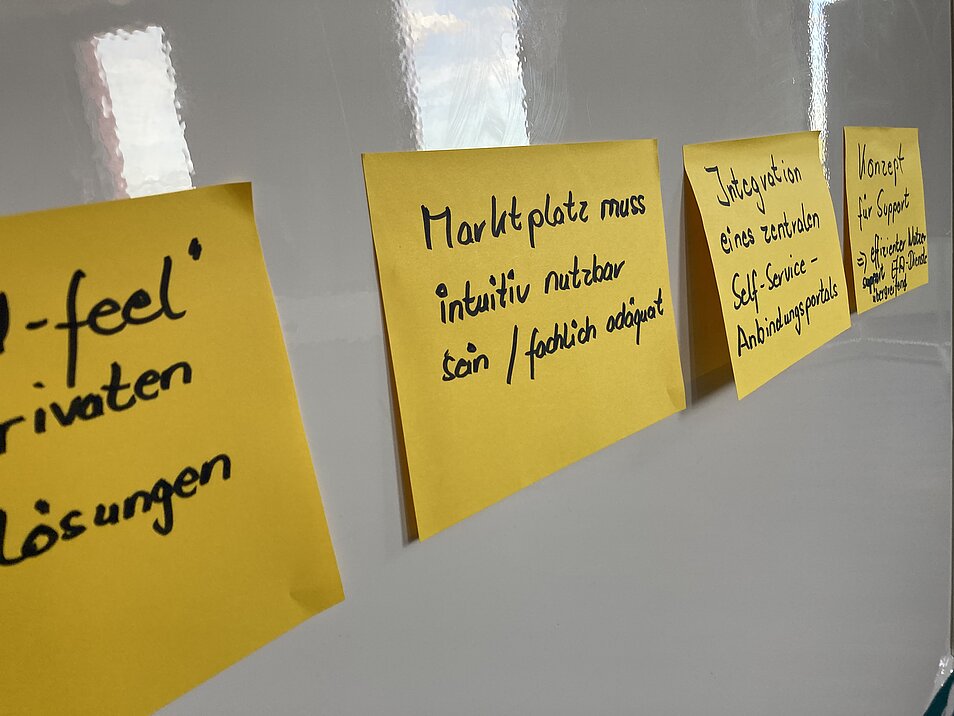 -feel"
rivaten
lösungen
Marktplatz muss
intuitiv nutzbar
sein / fachlich adäquat
Integration
eines zentralen
Self-Service-
Anbindungsportals
Konzept
für Support
=> effizienter Nutzer-
support EfA-Dienste
übergreifend